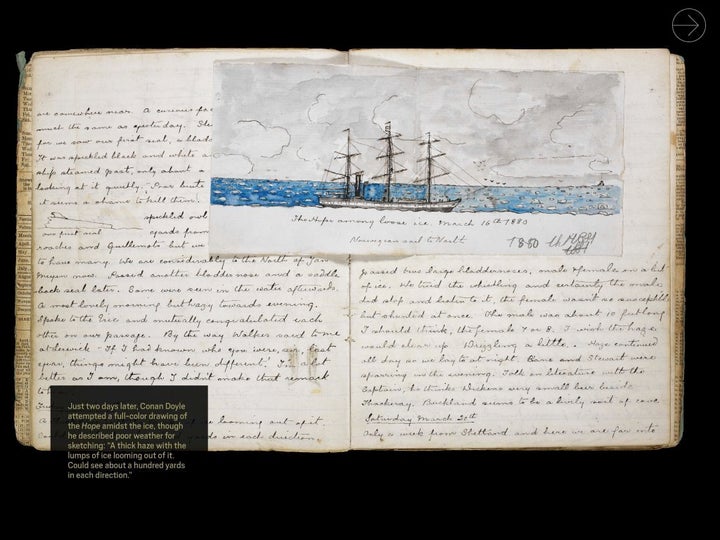 are somewhere near. A curious fa
much the same as yesterday. The
far we saw our first seal, a blad
It was speckled black and white a
ship steamed past, only about a
looking at it quietly. Poor brute
it seems a shame to kill them.
speckled owl
our first seal
yards from
roaches and Guillemots but we
to have many. We are considerably to the North of Jan
Meyen now. Passed another bladdernose and a saddle
back seal later. Some were seen in the water afterwards.
A most lovely morning but hazy towards evening.
Spoke to the Eric and mutually congratulated each
other on our passage. By the way Walker said to me
at Lerwick "If I had known who you were, last
year, things might have been different." I'm a bit
better as I am, though I didn't make that remark
to
A looming out of it.
yards in each direction.
The Hope among loose ice. March 16th 1880
Norwegian sail to North
1880
passed two large bladdernoses, male & female on a bit
of ice. We tried the whistling and certainly the male
did stop and listen to it, the female wasn't so susceptible
but shunted at once. The male was about 10 feet long
I should think, the female 7 or 8. I wish the haze
would clear up. Wriggling a little. . Haze continued
all day so we lay to at night. Cane and Stewart were
sparring in the evening. Talk on literature with the
Captain, he thinks Dickens very small beer beside
Thackeray. Buckland seems to be a lively sort of cove
Saturday March 20th
Only a week from Shetland and here we are far into
Just two days later, Conan Doyle
attempted a full-color drawing of
the Hope amidst the ice, though
he described poor weather for
sketching: "A thick haze with the
lumps of ice looming out of it.
Could see about a hundred yards
in each direction."